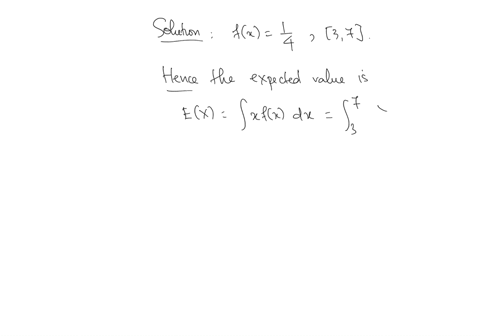 Solution: f(x) = 1/4, [3,7].
Hence the expected value is
E(X) = ∫ x f(x) dx = ∫_3^7